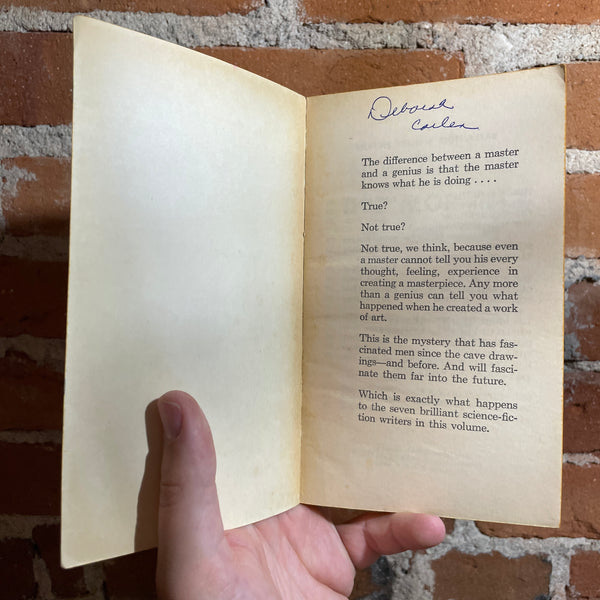 Deborah
The difference between a master
and a genius is that the master
knows what he is doing . . . .
True?
Not true?
Not true, we think, because even
a master cannot tell you his every
thought, feeling, experience in
creating a masterpiece. Any more
than a genius can tell you what
happened when he created a work
of art.
This is the mystery that has fas-
cinated men since the cave draw-
ings—and before. And will fasci-
nate them far into the future.
Which is exactly what happens
to the seven brilliant science-fic-
tion writers in this volume.